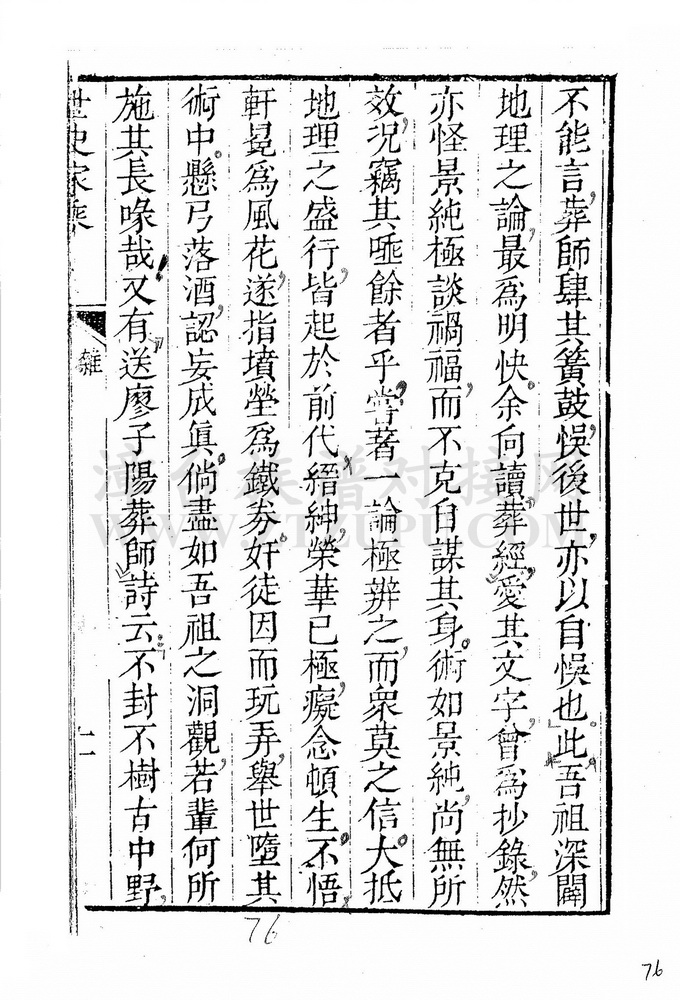 不能言，葬師肆其簧鼓，悞後世，亦以自悞也。』此吾祖深闢
地理之論，最爲明快。余向讀『葬經』，愛其文字，曾爲抄錄，然
亦怪景純極談禍福，而不克自謀其身。術如景純，尚無所
效，況竊其唾餘者乎，嘗著一論極辨之，而衆莫之信。大抵
地理之盛行，皆起於前代縉紳，榮華已極，癡念頓生。不悟
軒冕爲風花，遂指墳塋爲鐵券。奸徒因而玩弄，舉世墮其
術中。懸弓落酒，認妄成眞。倘盡如吾祖之洞觀，若輩何所
施其長喙哉！又有『送廖子陽葬師』詩云：『不封不樹古中野，
世史家乘
雜
二
76
76
WWW.STZUPU.COM